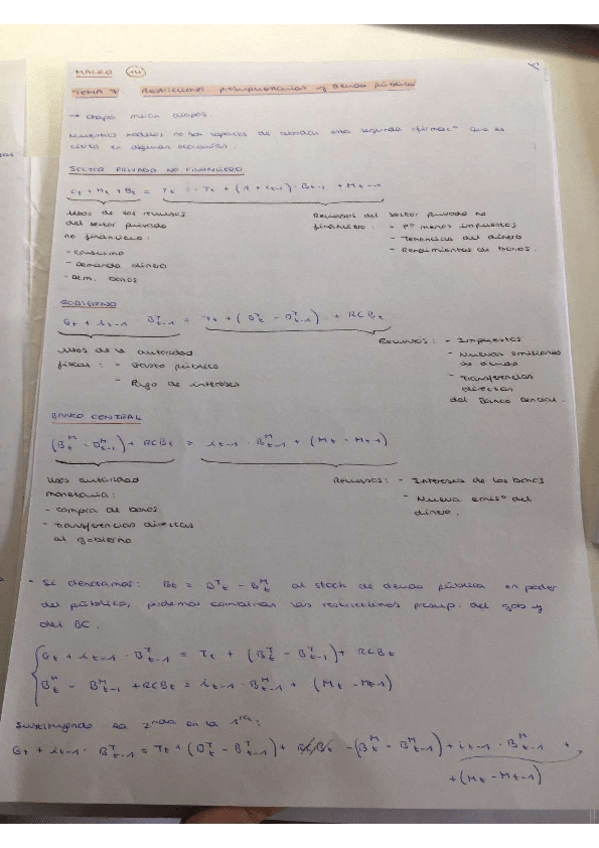 MACRO (14)
TEMA 7 Restricciones presupuestarias y deuda pública
→ Chapa micin çiopos.
Nuestros modelos no son capaces de abordar esta segunda afirmacº que es
cierta en algunas economías.
SECTOR PRIVADO NO FINANCIERO
Ct + Mt + Bt = Yt - Tt + (1 + it-1) · Bt-1 + Mt-1
Usos de los recursos
del sector privado
no financiero:
- Consumo
- Demanda dinero
- Dem. bonos
Recursos del sector privado no
financiero: - Pº menos impuestos
- Tenencias del dinero
- Rendimientos de bonos.
GOBIERNO
Gt + it-1 · B^T t-1 = Tt + (B^T t - B^T t-1) + RCBt
Usos de la autoridad
fiscal: - Gasto público
- Pago de intereses
Recursos: - Impuestos
- Nuevas emisiones
de deuda
- Transferencias
directas
del Banco Central.
BANCO CENTRAL
(B^M t - B^M t-1) + RCBt = it-1 · B^M t-1 + (Mt - Mt-1)
Usos autoridad
monetaria:
- Compra de bonos
- Transferencias directas
al gobierno
Recursos: - Intereses de los bonos
- Nueva emisº del
dinero.
- Si denotamos: Bt = B^T t - B^M t al stock de deuda pública en poder
del público, podemos combinar las restricciones presup. del gob y
del BC.
Gt + it-1 · B^T t-1 = Tt + (B^T t - B^T t-1) + RCBt
B^M t - B^M t-1 + RCBt = it-1 · B^M t-1 + (Mt - Mt-1)
Sustituyendo la 2nda en la 1ra:
Gt + it-1 · B^T t-1 = Tt + (B^T t - B^T t-1) + RCBt - (B^M t - B^M t-1) + it-1 · B^M t-1 +
+ (Mt - Mt-1)